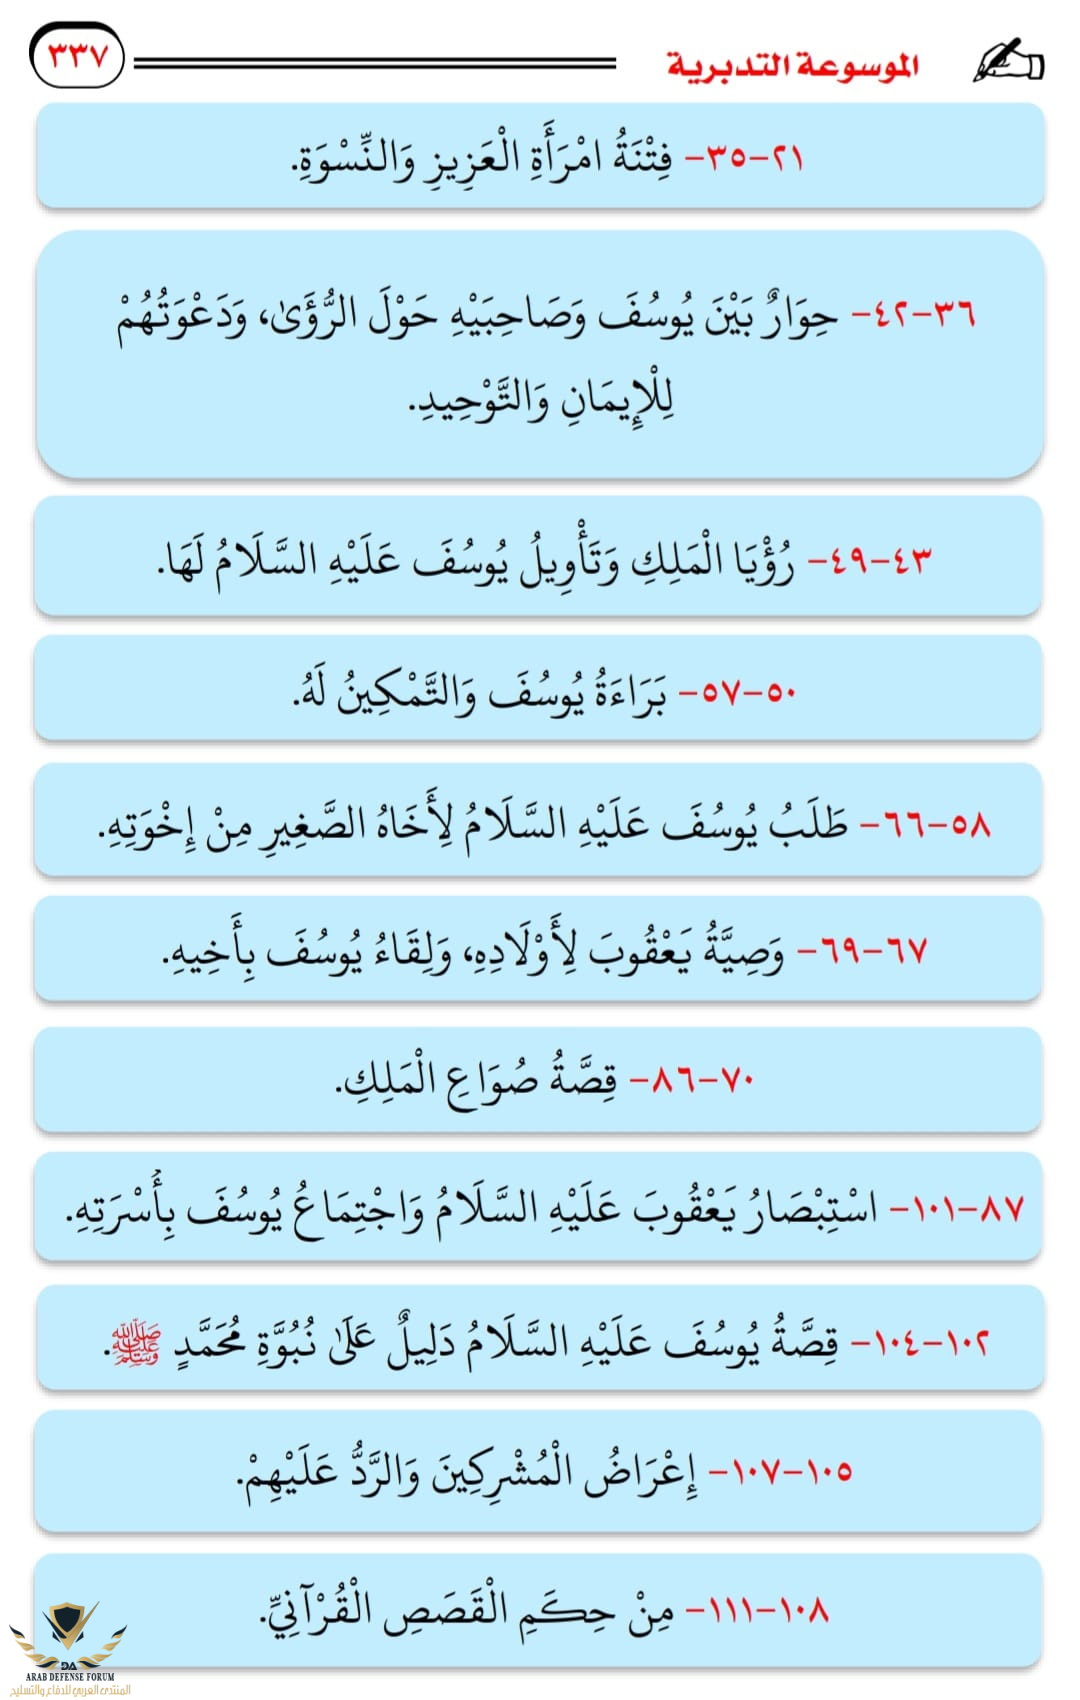 الموسوعة التدبرية
٣٣٧
٢١-٣٥- فِتْنَةُ امْرَأَةِ الْعَزِيزِ وَالنِّسْوَةِ.
٣٦-٤٢- حِوَارٌ بَيْنَ يُوسُفَ وَصَاحِبَيْهِ حَوْلَ الرُّؤَىٰ، وَدَعْوَتُهُمْ
لِلْإِيمَانِ وَالتَّوْحِيدِ.
٤٣-٤٩- رُؤْيَا الْمَلِكِ وَتَأْوِيلُ يُوسُفَ عَلَيْهِ السَّلَامُ لَهَا.
٥٠-٥٧- بَرَاءَةُ يُوسُفَ وَالتَّمْكِينُ لَهُ.
٥٨-٦٦- طَلَبُ يُوسُفَ عَلَيْهِ السَّلَامُ لِأَخَاهُ الصَّغِيرِ مِنْ إِخْوَتِهِ.
٦٧-٦٩- وَصِيَّةُ يَعْقُوبَ لِأَوْلَادِهِ، وَلِقَاءُ يُوسُفَ بِأَخِيهِ.
٧٠-٨٦- قِصَّةُ صُوَاعِ الْمَلِكِ.
٨٧-١٠١- اسْتِبْصَارُ يَعْقُوبَ عَلَيْهِ السَّلَامُ وَاجْتِمَاعُ يُوسُفَ بِأُسْرَتِهِ.
١٠٢-١٠٤- قِصَّةُ يُوسُفَ عَلَيْهِ السَّلَامُ دَلِيلٌ عَلَىٰ نُبُوَّةِ مُحَمَّدٍ ﷺ.
١٠٥-١٠٧- إِعْرَاضُ الْمُشْرِكِينَ وَالرَّدُّ عَلَيْهِمْ.
١٠٨-١١١- مِنْ حِكَمِ الْقَصَصِ الْقُرْآنِيِّ.
DA
ARAB DEFENSE FORUM
المنتدى العربي للدفاع والتسليح